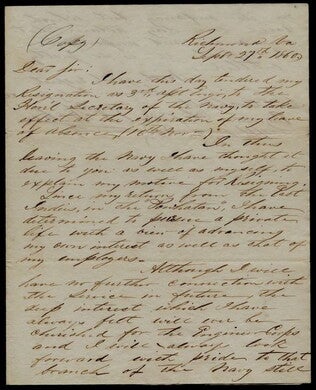 (Copy)
Richmond Va
Sept 27th 1860
Dear Sir:
I have this day tendered my
Resignation as 3rd Asst Engr, to the
Hon'l Secretary of the Navy, to take
effect at the expiration of my leave
of absence, (10th Nov.)
In thus
leaving the Navy I have thought it
due to you as well as myself, to
explain my motive for Resigning.
Since my return from the East
Indies, in the I have
determined to pursue a private
life with a view of advancing
my own interest as well as that of
my employers.
Although I will
have no further connection with
the Service in future the
deep interest which I have
always felt will ever be
cherished for the Engineer Corps
and I will always look
forward with pride to that
branch of the Navy still